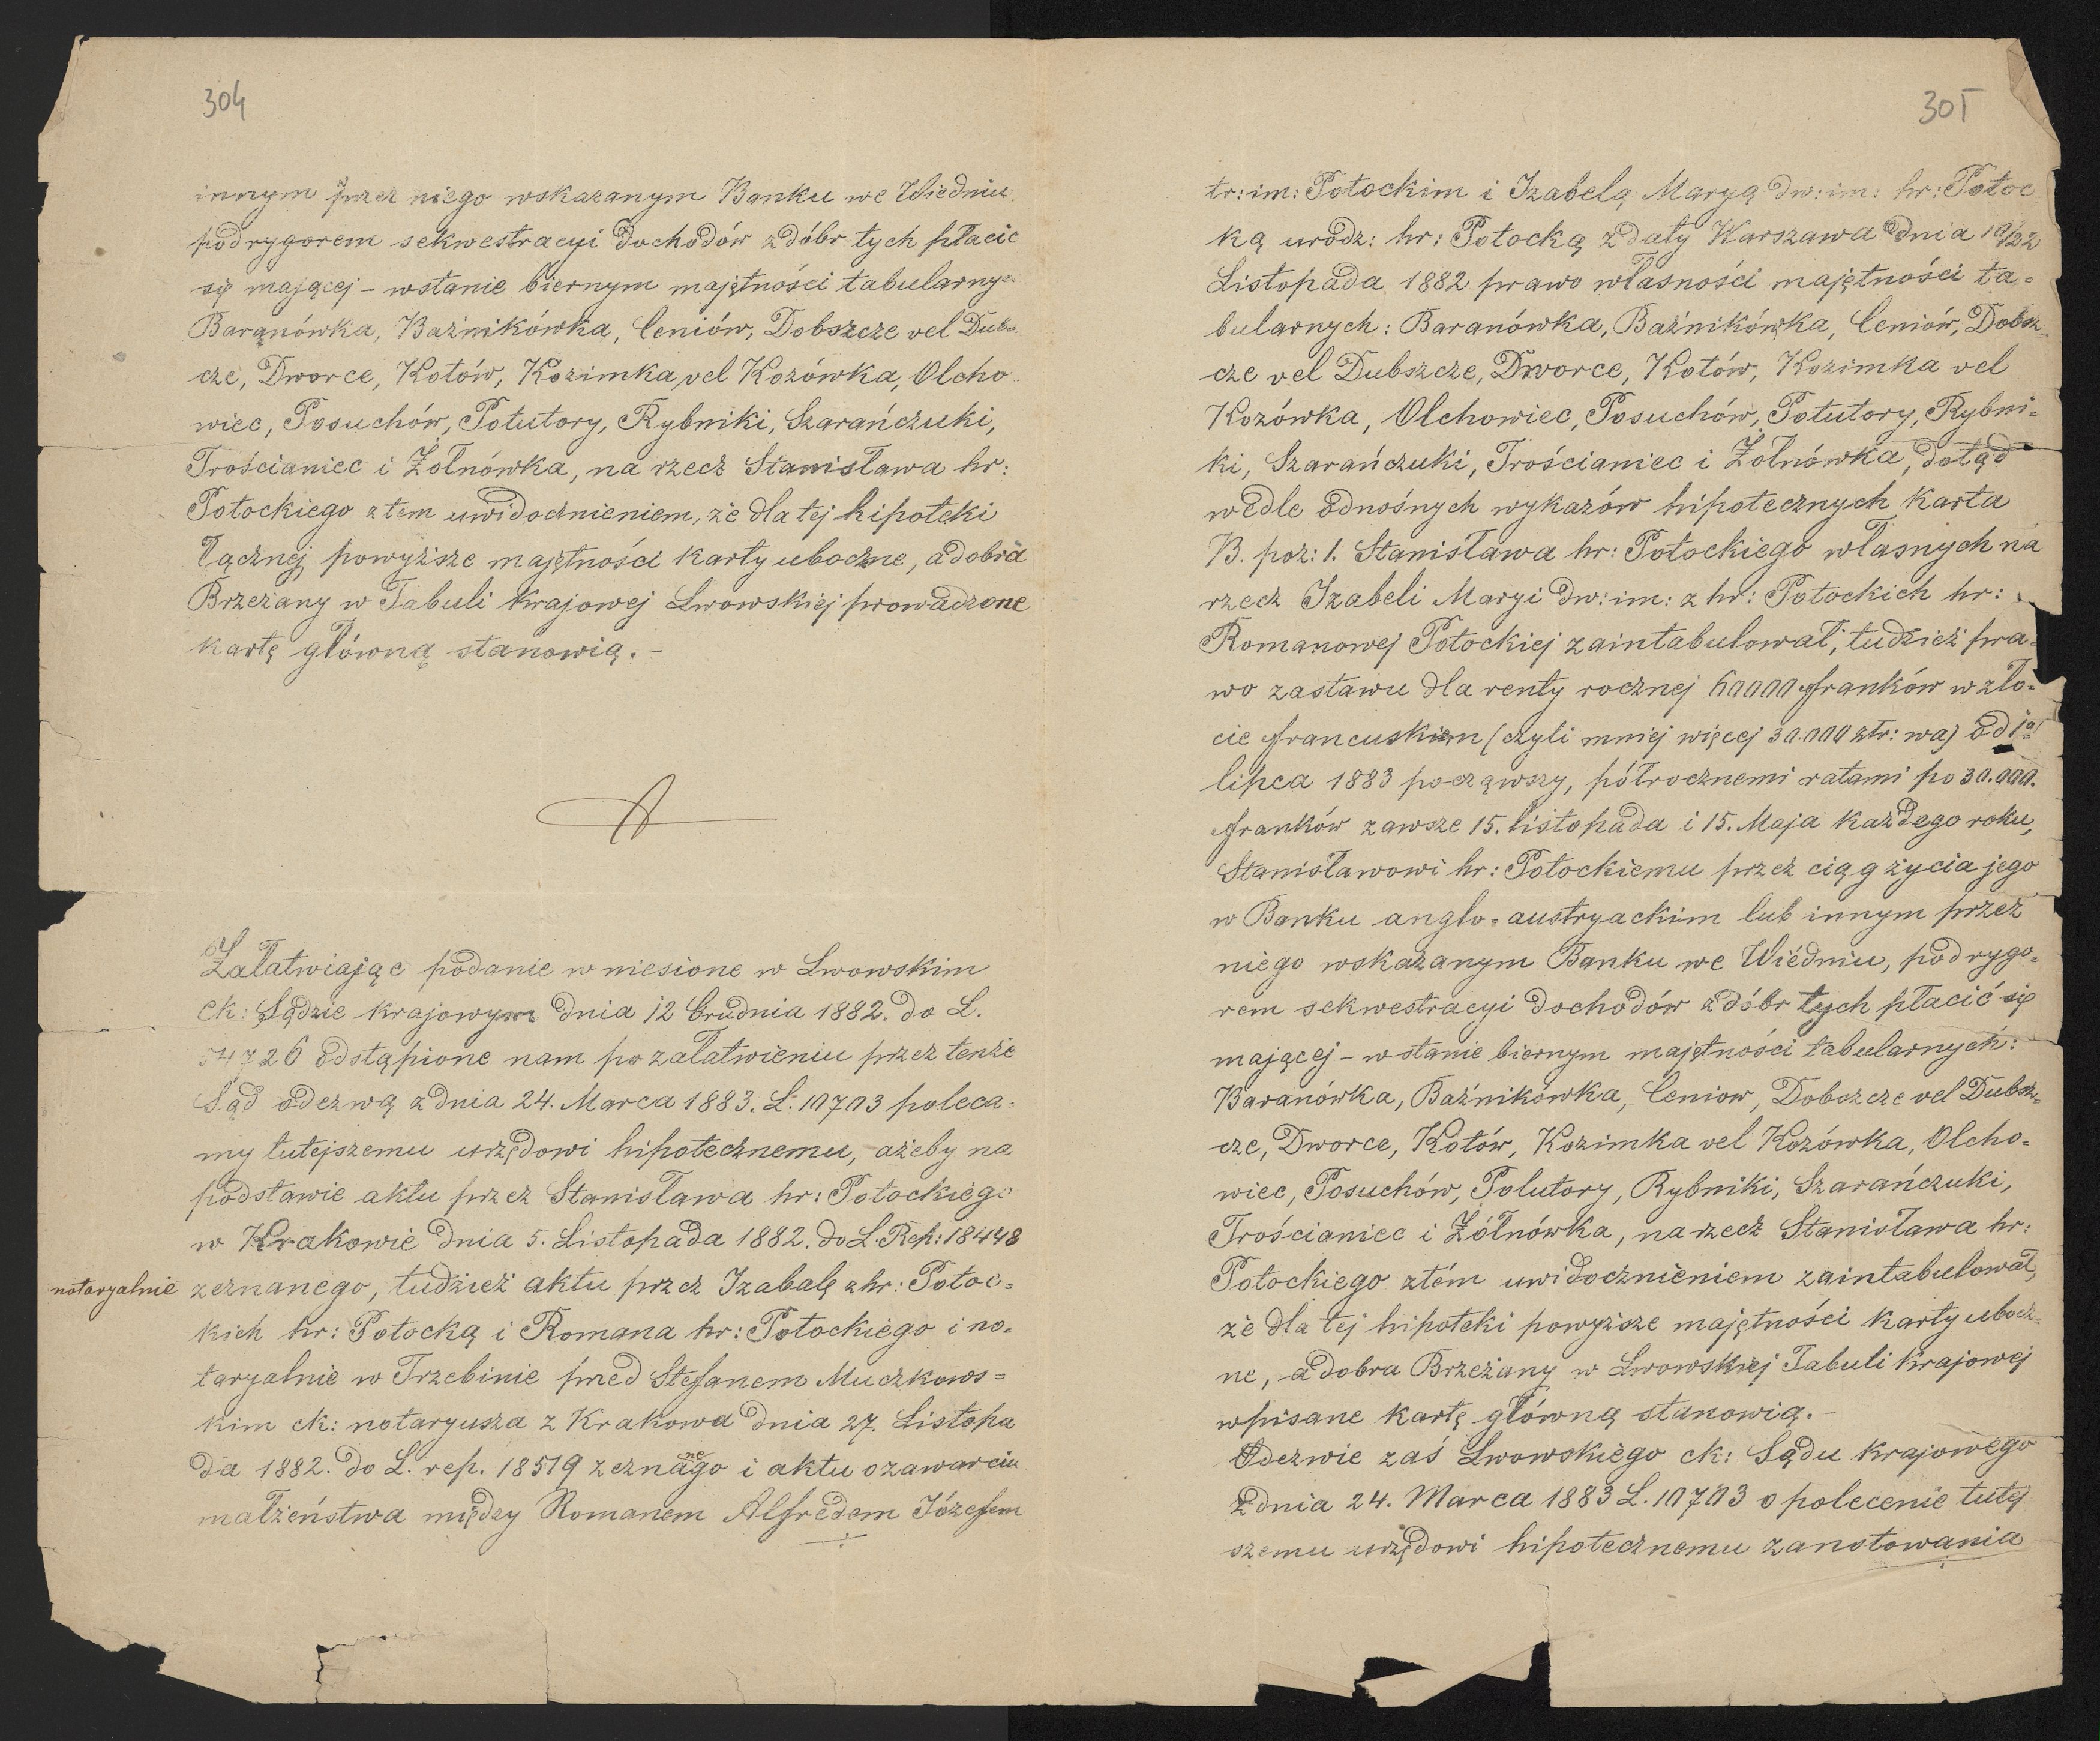 304
innym przez niego wskazanym Banku we Wiedniu
pod rygorem sekwestracyi dochodów z dóbr tych płacić
się mającej – wstanie biernym majętności tabularnych
Baranówka, Baźnikówka, Ceniów, Dobszcze vel Dubsz
cze, Dworce, Kotów, Kozimka vel Kozówka, Olcho
wiec, Posuchów, Potutory, Rybniki, Szarańczuki,
Trościaniec i Żołnówka, na rzecz Stanisława hr:
Potockiego z tem uwidocznieniem, że dla tej hipoteki
łącznej powyższe majętności karty uboczne, a dobra
Brzeżany w Tabuli krajowej Lwowskiej prowadzone
kartę główną stanowią. –
Załatwiając podanie wniesione w Lwowskim
ck: Sądzie krajowym dnia 12 Grudnia 1882. do L.
54726 odstąpione nam po załatwieniu przez tenże
Sąd odezwą z dnia 24. Marca 1883. L: 10703 poleca-
my tutejszemu urzędowi hipotecznemu, ażeby na
podstawie aktu przez Stanisława hr: Potockiego
w Krakowie dnia 5. Listopada 1882. do L. Rep: 18448
notaryalnie zeznanego, tudzież aktu przez Izabalę z hr: Potoc=
kich hr: Potocką i Romana hr: Potockiego i no=
taryalnie w Trzebinie przed Stefanem Muczkows=
kim ck: notaryusza z Krakowa dnia 27. Listopa
da 1882. do L. rep. 18519 zeznanego i aktu o zawarciu
małżeństwa między Romanem Alfredem Józefem
305
tr: im: Potockim i Izabelą Maryą dw: im: hr: Potoc
ką urodz: hr: Potocką z daty Warszawa dnia 10/22
Listopada 1882 prawo własności majętności ta=
bularnych: Baranówka, Baźnikówka, Ceniów, Dobsz=
cze vel Dubszcze, Dworce, Kotów, Kozimka vel
Kozówka, Olchowiec, Posuchów, Potutory, Rybni=
ki, Szarańczuki, Trościaniec i Żołnówka, dotąd
wedle odnośnych wykazów hipotecznych karta
B. poz: 1. Stanisława hr: Potockiego własnych na
rzecz Izabeli Maryi dw: im: z hr: Potockich hr:
Romanowej Potockiej zaintabulował, tudzież pra=
wo zastawu dla renty rocznej 60000 franków w zło=
cie francuskiem (czyli mniej więcej 30.000 złr: wa) od 1go
lipca 1883 począwszy, półrocznemi ratami po 30.000.
franków zawsze 15. listopada i 15. Maja każdego roku,
Stanisławowi hr: Potockiemu przez ciąg życia jego
w Banku anglo=austryackim lub innym przez
niego wskazanym Banku we Wiédniu, pod rygo=
rem sekwestracyi dochodów z dóbr tych płacić się
mającej – w stanie biernym majętności tabularnych:
Baranówka, Baźnikówka, Ceniow, Dobszcze vel Dubsz=
cze, Dworce, Kotów, Kozimka vel Kozówka, Olcho=
wiec, Posuchów, Polutory, Rybniki, Szarańczuki,
Trościaniec i Żółnówka, na rzecz Stanisława hr:
Potockiego z tém uwidocznieniem zaintabulował,
że dla tej hipoteki powyższe majętności karty ubocz=
ne, a dobra Brzeżany w Lwowskiej Tabuli krajowej
wpisane kartę główną stanowią. –
Odezwie zaś Lwowskiego ck: Sądu krajowego
z dnia 24. Marca 1883 L. 10703 o polecenie tutej
szemu urzędowi hipotecznemu zanotowania